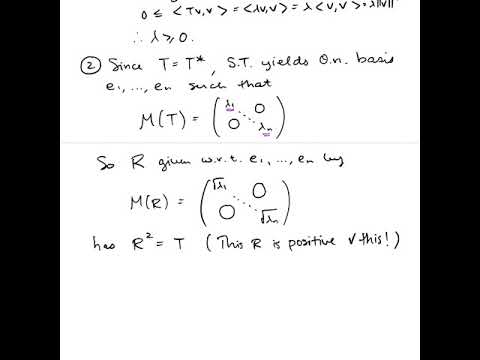 0 ≤ <Tv,v> = <λv,v> = λ<v,v> = λ||v||
∴ λ ≥ 0.
② Since T = T*, S.T. yields O.n. basis
e₁, ..., eₙ such that
M(T) = (λ₁ 0 ⋱ 0 λₙ)
So R given w.r.t. e₁, ..., eₙ by
M(R) = (√λ₁ 0 ⋱ 0 √λₙ)
has R² = T (This R is positive ✓ this!)